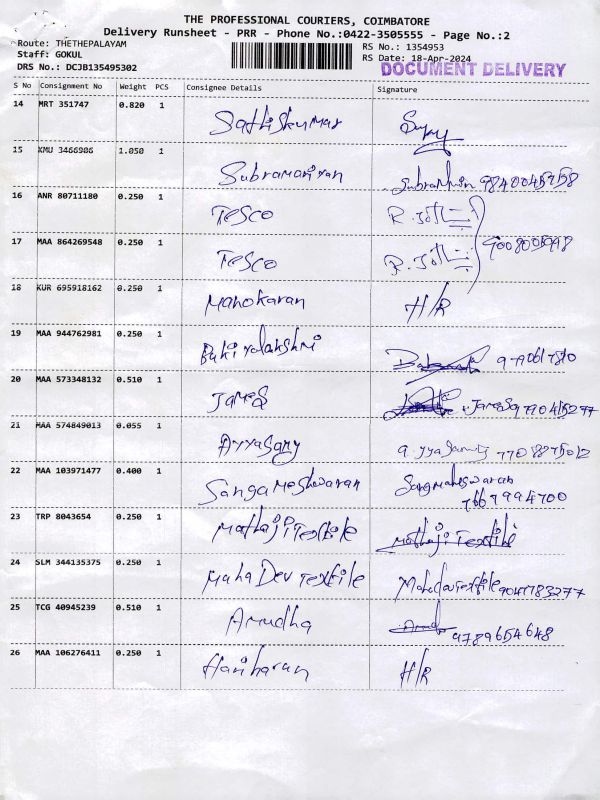 THE PROFESSIONAL COURIERS, COIMBATORE
Delivery Runsheet - PRR - Phone No.:0422-3505555 - Page No.:2
Route: THETHEPALAYAM
RS No.: 1354953
Staff: GOKUL
RS Date: 18-Apr-2024
DRS No.: DCJB135495302
DOCUMENT DELIVERY
S No Consignment No Weight PCS Consignee Details Signature
14 MRT 351747 0.820 1 Sathiskumar
15 KMU 3466906 1.050 1 Subramaniyan 9840045958
16 ANR 80711180 0.250 1 TESCO
17 MAA 864269548 0.250 1 TESCO
18 KUR 695918162 0.250 1 Manokaran H/R
19 MAA 944762981 0.250 1
20 MAA 573348132 0.510 1 James James
21 MAA 574849013 0.055 1 Ayyasamy
22 MAA 103971477 0.400 1 Sangameshwaran Sangmaheswaran
7667994700
23 TRP 8043654 0.250 1 Mathaji Textile Mathaji Textile
24 SLM 344135375 0.250 1 Maha Dev Textile Mahadev Textile 9047783277
25 TCG 40945239 0.510 1 Amudha 9789654648
26 MAA 106276411 0.250 1 Hariharan H/R